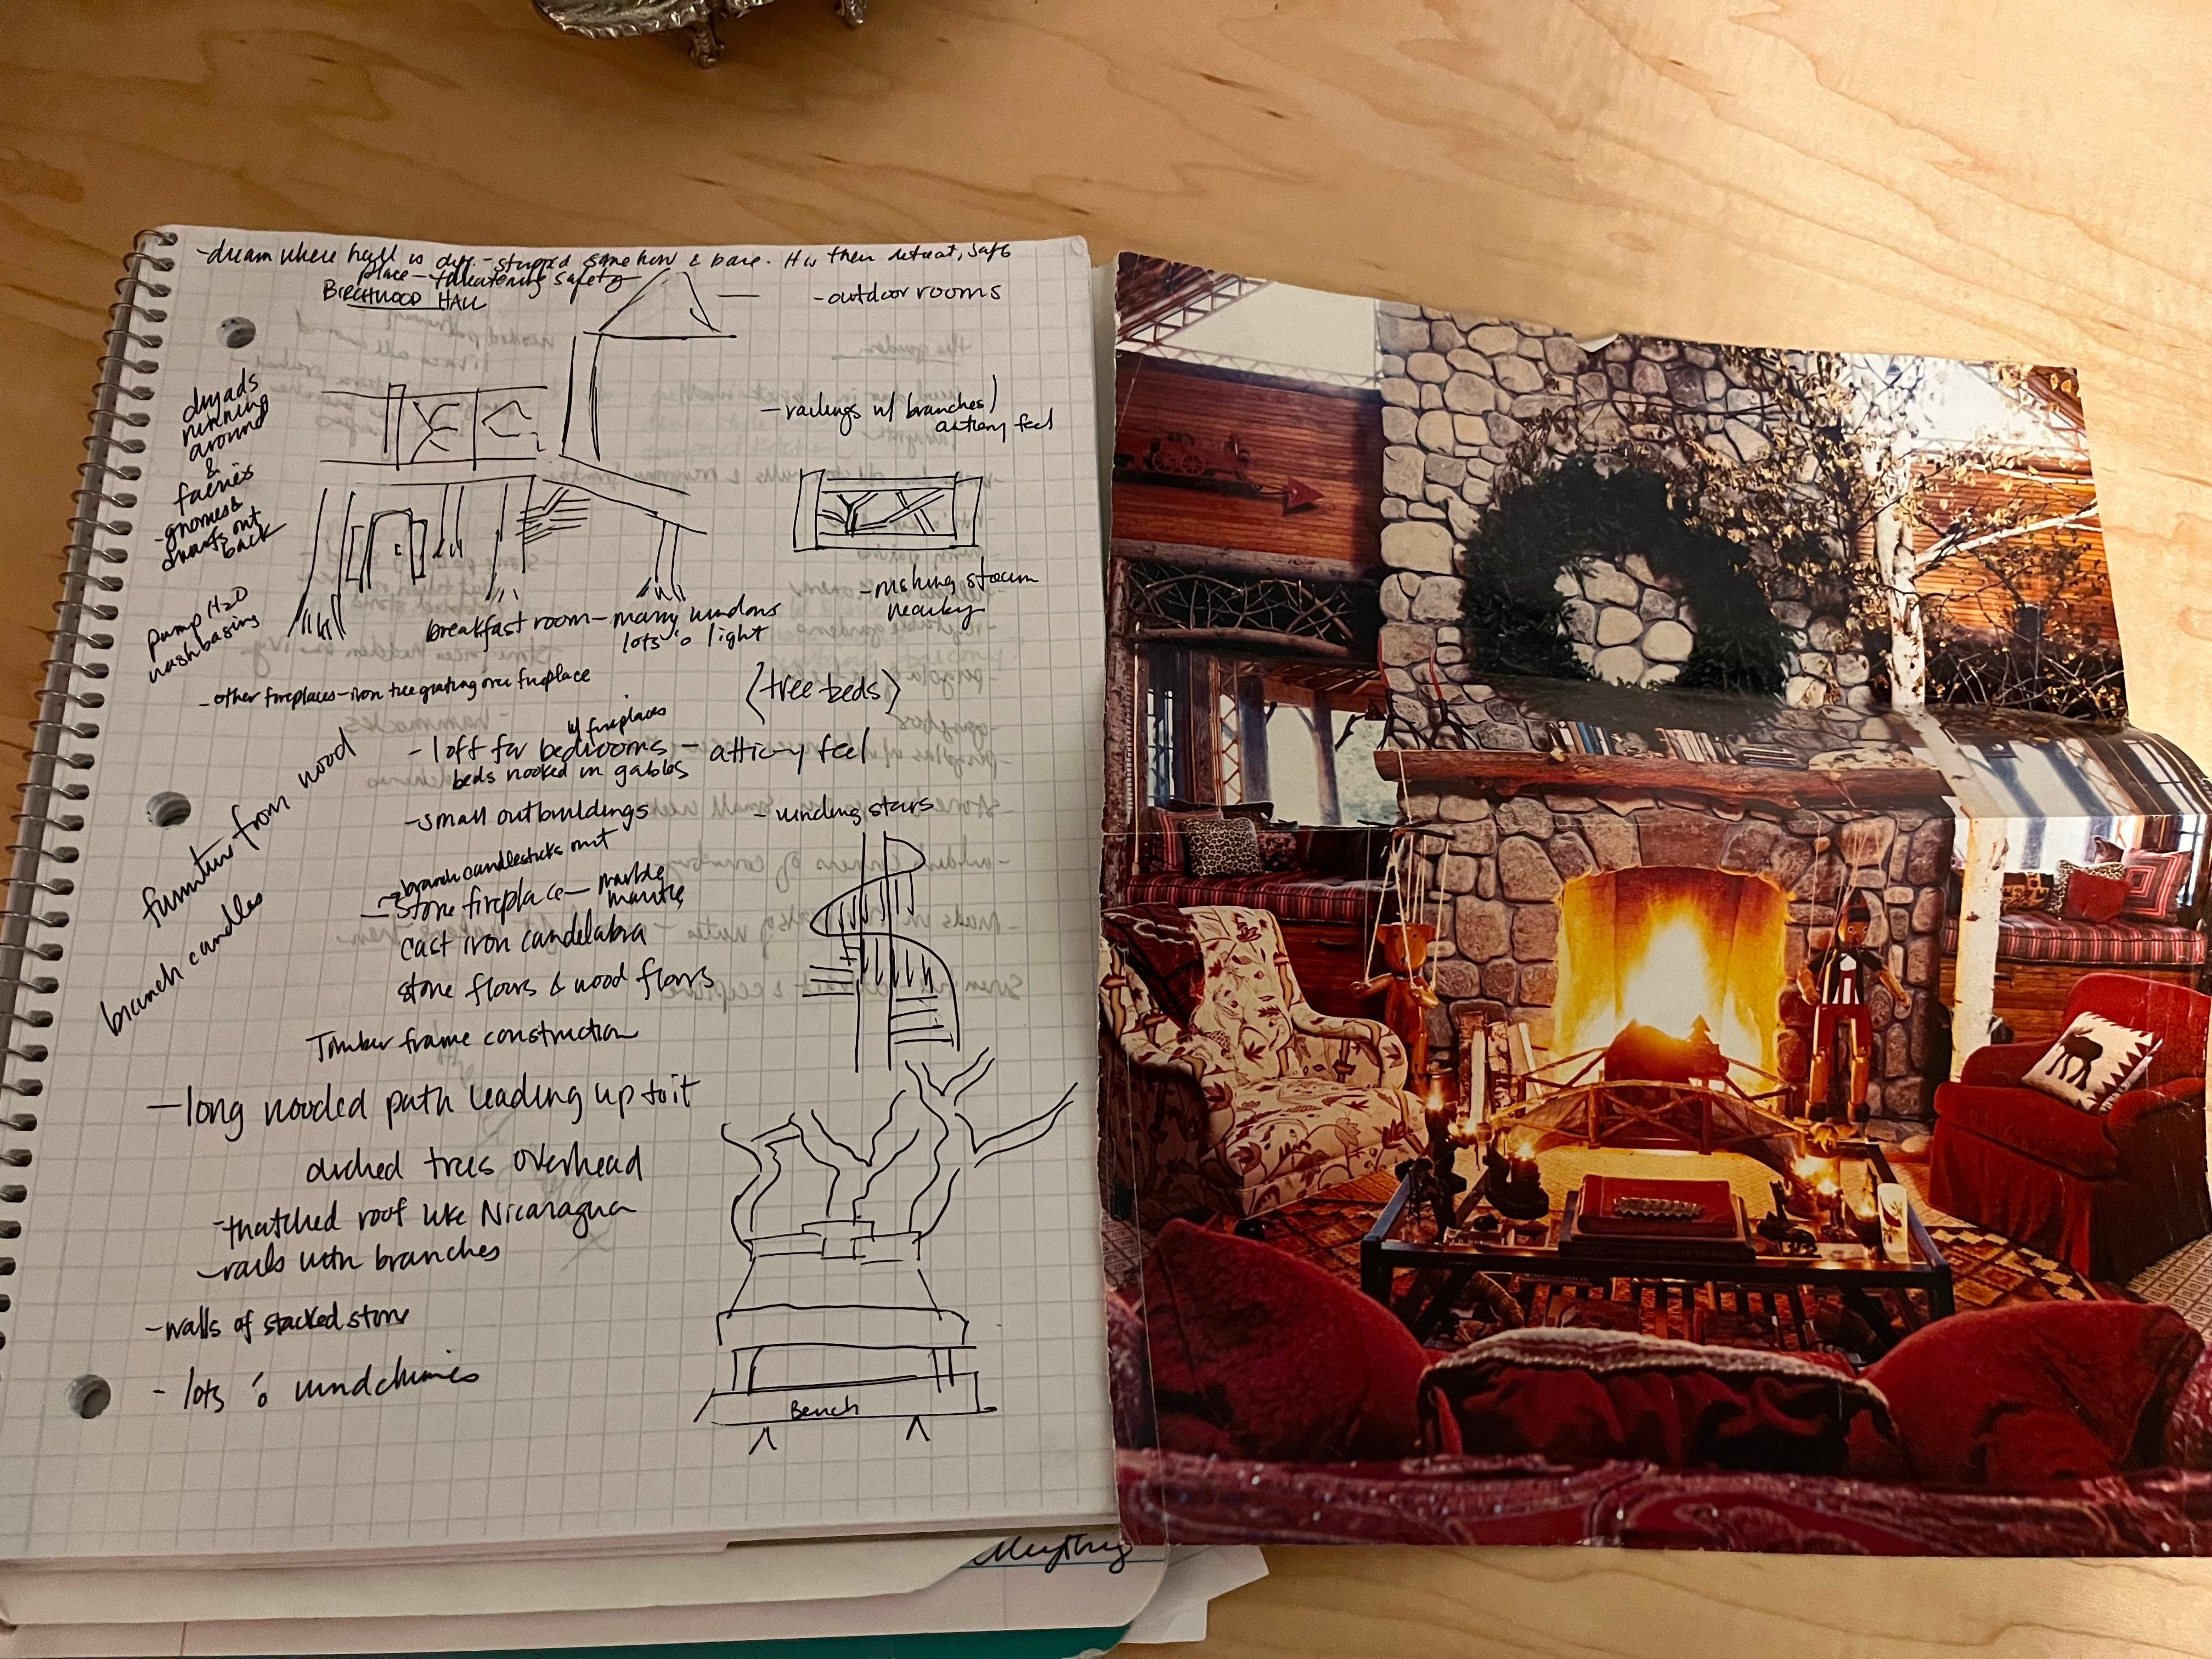 -dream where hall is diff.-stripped somehow & bare. H is their retreat, safe
place-threatening safety
BIRCHWOOD HALL
-outdoor rooms
dryads
running
around
&
faeries
-gnomes &
dwarfs out
back
-railings w/ branches/
attic-y feel
pump H2O
washbasins
breakfast room-many windows
lots 'o light
-rushing stream
nearby
-other fireplaces-iron tree grating over fireplace
(tree beds)
w/ fireplaces
-loft for bedrooms - attic-y feel
beds nooked in gables
furniture from wood
branch candles
-small outbuildings
-winding stairs
-branch candlesticks on it
-stone fireplace-marble
mantle
cast iron candelabra
stone floors & wood floors
Timber frame construction
-long wooded path leading up to it
arched trees overhead
-thatched roof like Nicaragua
-rails with branches
-walls of stacked stone
- lots 'o windchimes
Bench